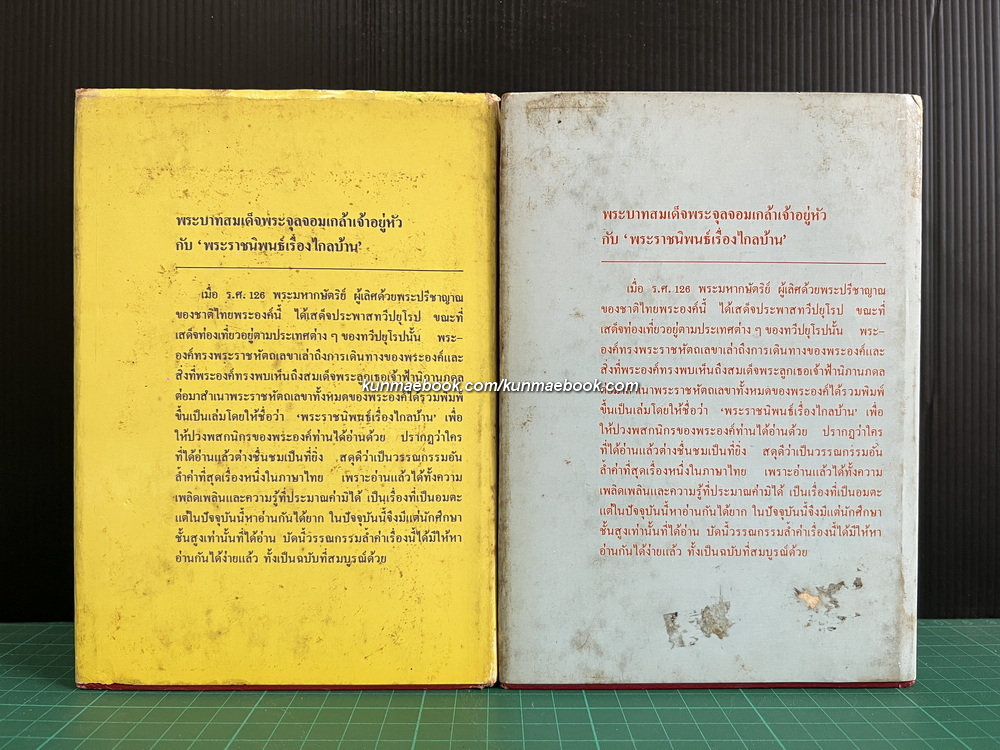 พระบาทสมเด็จพระจุลจอมเกล้าเจ้าอยู่หัว
กับ ‘พระราชนิพนธ์เรื่องไกลบ้าน’
เมื่อ ร.ศ. 126 พระมหากษัตริย์ ผู้เลิศด้วยพระปรีชาญาณ
ของชาติไทยพระองค์นี้ ได้เสด็จประพาสทวีปยุโรป ขณะที่
เสด็จท่องเที่ยวอยู่ตามประเทศต่าง ๆ ของทวีปยุโรปนั้น พระ-
องค์ทรงพระราชหัตถเลขาเล่าถึงการเดินทางของพระองค์และ
สิ่งที่พระองค์ทรงพบเห็นถึงสมเด็จพระลูกเธอเจ้าฟ้านิภานภดล
ต่อมาสำเนาพระราชหัตถเลขาทั้งหมดของพระองค์ได้รวมพิมพ์
ขึ้นเป็นเล่มโดยให้ชื่อว่า ‘พระราชนิพนธ์เรื่องไกลบ้าน’ เพื่อ
ให้ปวงพสกนิกรของพระองค์ท่านได้อ่านด้วย ปรากฏว่าใคร
ที่ได้อ่านแล้วต่างชื่นชมเป็นที่ยิ่ง สดุดีว่าเป็นวรรณกรรมอัน
ล้ำค่าที่สุดเรื่องหนึ่งในภาษาไทย เพราะอ่านแล้วได้ทั้งความ
เพลิดเพลินและความรู้ที่ประมาณค่ามิได้ เป็นเรื่องที่เป็นอมตะ
แต่ในปัจจุบันนี้หาอ่านกันได้ยาก ในปัจจุบันนี้จึงมีแต่นักศึกษา
ชั้นสูงเท่านั้นที่ได้อ่าน บัดนี้วรรณกรรมล้ำค่าเรื่องนี้ได้มีให้หา
อ่านกันได้ง่ายแล้ว ทั้งเป็นฉบับที่สมบูรณ์ด้วย
พระบาทสมเด็จพระจุลจอมเกล้าเจ้าอยู่หัว
กับ ‘พระราชนิพนธ์เรื่องไกลบ้าน’
เมื่อ ร.ศ. 126 พระมหากษัตริย์ ผู้เลิศด้วยพระปรีชาญาณ
ของชาติไทยพระองค์นี้ ได้เสด็จประพาสทวีปยุโรป ขณะที่
เสด็จท่องเที่ยวอยู่ตามประเทศต่าง ๆ ของทวีปยุโรปนั้น พระ-
องค์ทรงพระราชหัตถเลขาเล่าถึงการเดินทางของพระองค์และ
สิ่งที่พระองค์ทรงพบเห็นถึงสมเด็จพระลูกเธอเจ้าฟ้านิภานภดล
ต่อมาสำเนาพระราชหัตถเลขาทั้งหมดของพระองค์ได้รวมพิมพ์
ขึ้นเป็นเล่มโดยให้ชื่อว่า ‘พระราชนิพนธ์เรื่องไกลบ้าน’ เพื่อ
ให้ปวงพสกนิกรของพระองค์ท่านได้อ่านด้วย ปรากฏว่าใคร
ที่ได้อ่านแล้วต่างชื่นชมเป็นที่ยิ่ง สดุดีว่าเป็นวรรณกรรมอัน
ล้ำค่าที่สุดเรื่องหนึ่งในภาษาไทย เพราะอ่านแล้วได้ทั้งความ
เพลิดเพลินและความรู้ที่ประมาณค่ามิได้ เป็นเรื่องที่เป็นอมตะ
แต่ในปัจจุบันนี้หาอ่านกันได้ยาก ในปัจจุบันนี้จึงมีแต่นักศึกษา
ชั้นสูงเท่านั้นที่ได้อ่าน บัดนี้วรรณกรรมล้ำค่าเรื่องนี้ได้มีให้หา
อ่านกันได้ง่ายแล้ว ทั้งเป็นฉบับที่สมบูรณ์ด้วย
kunmaebook.com/kunmaebook.com